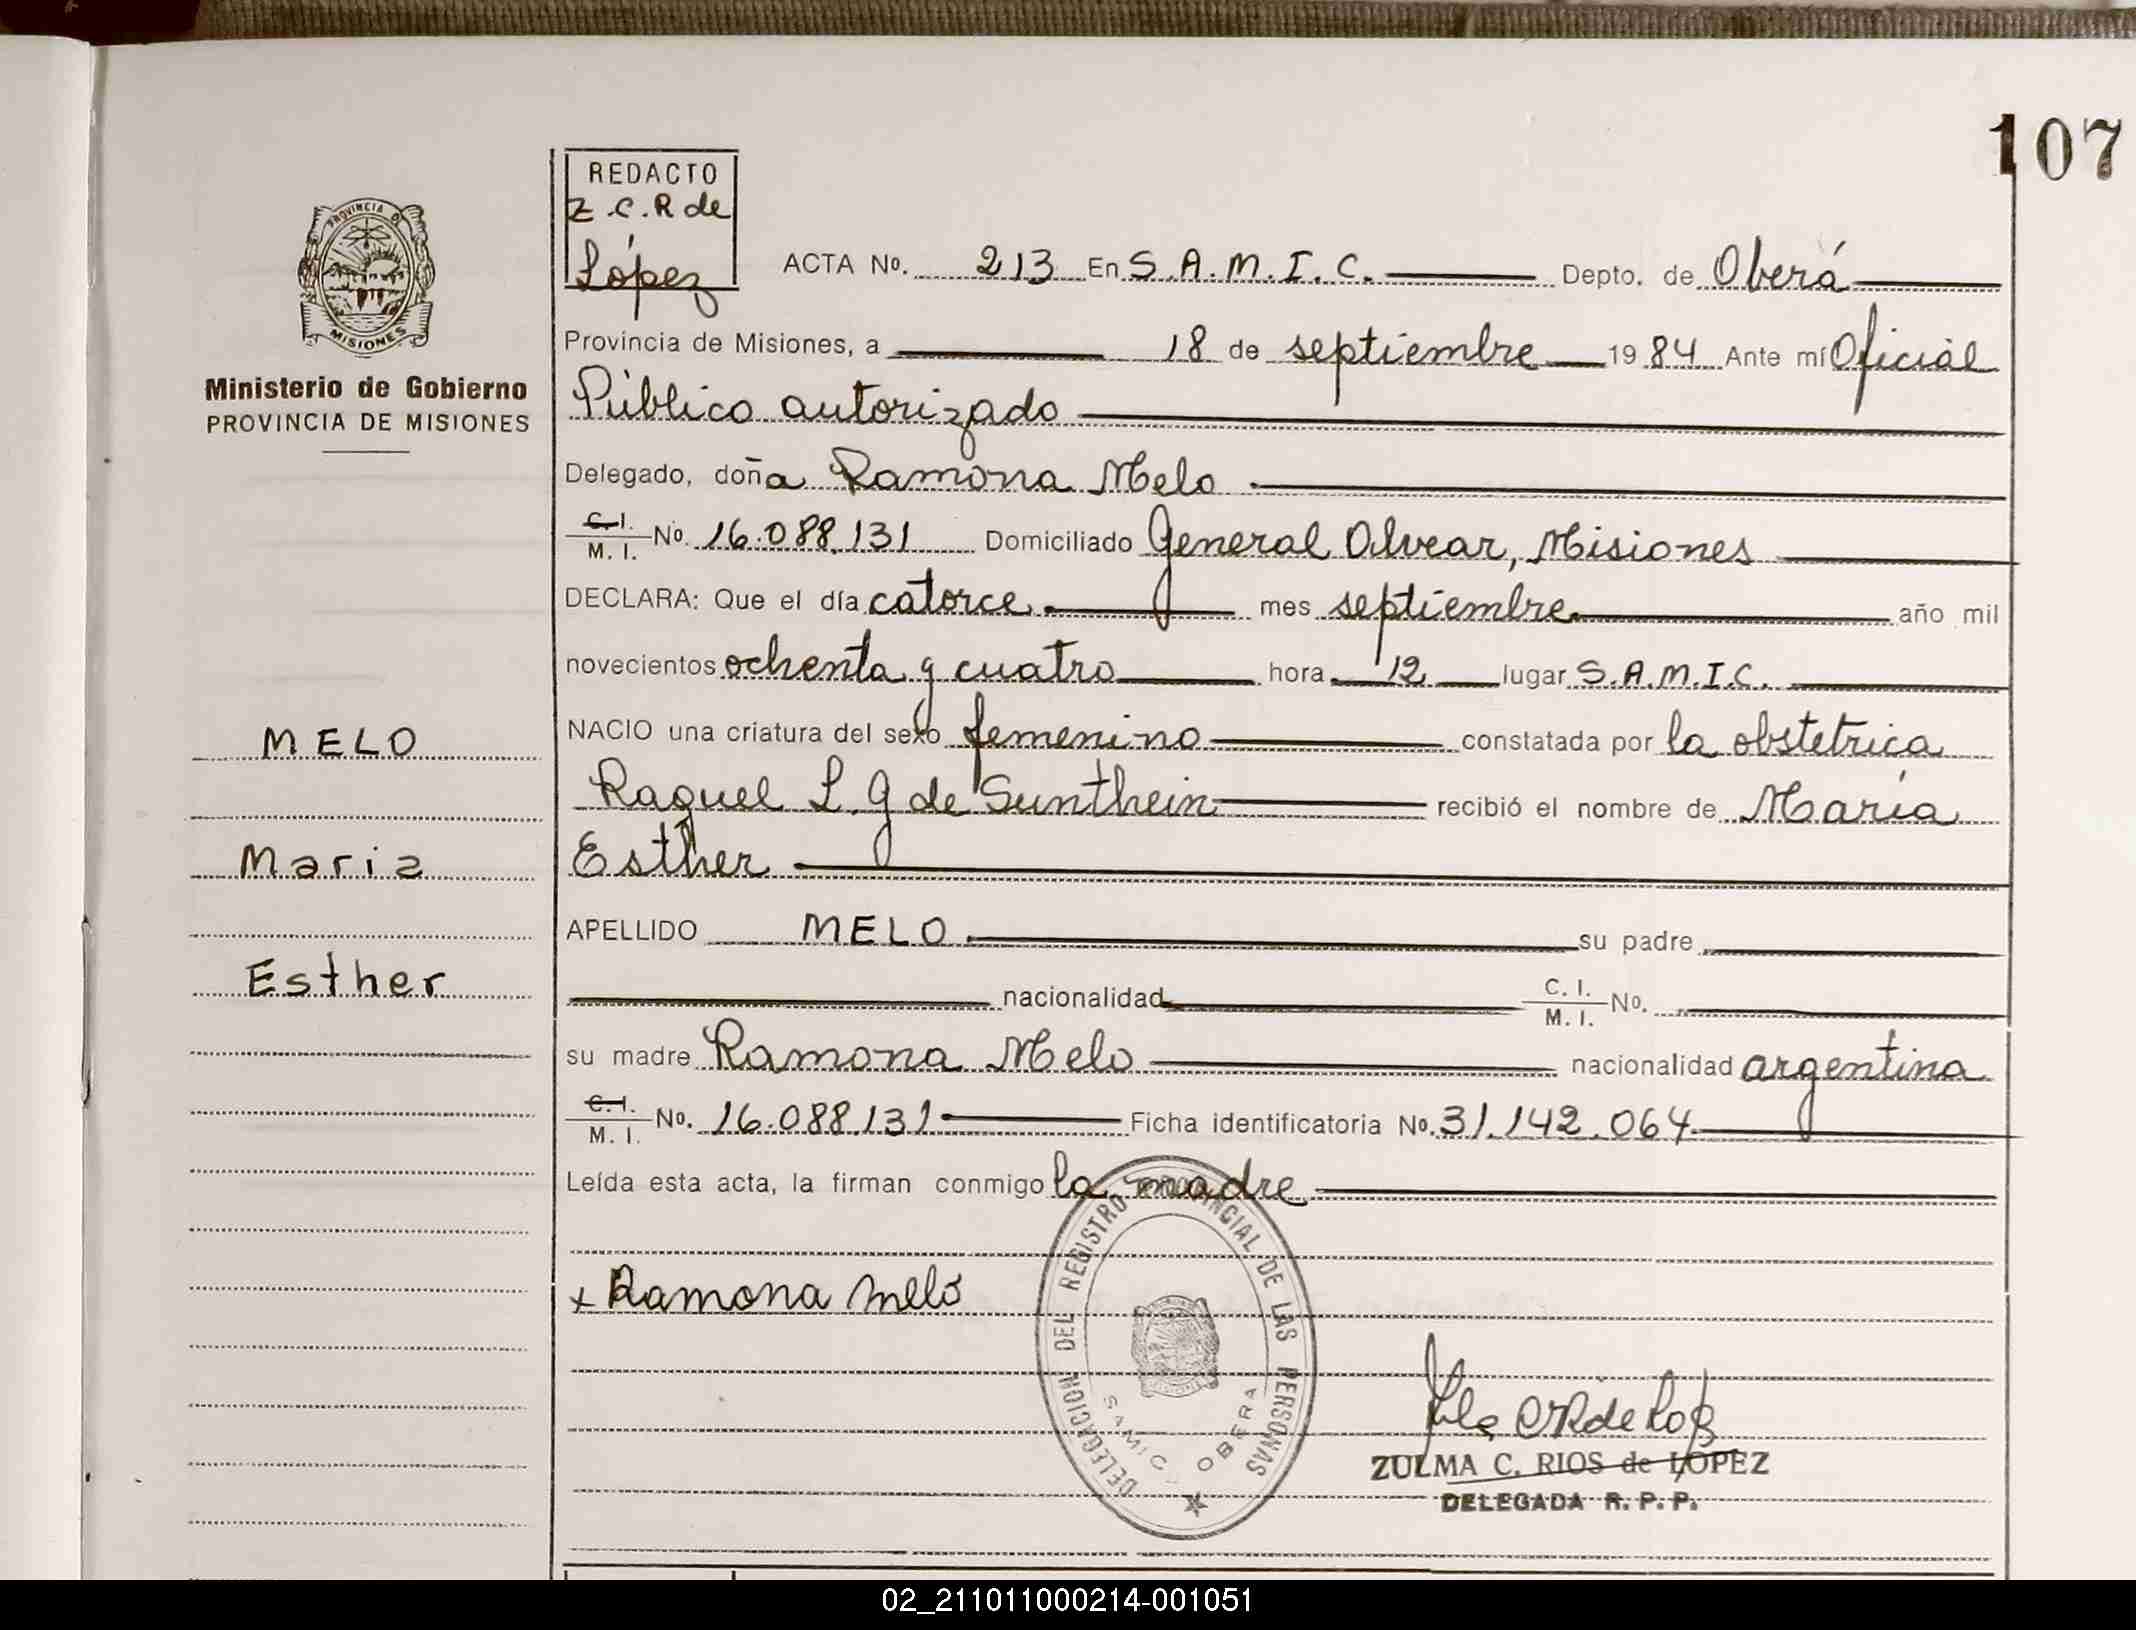 107
REDACTO
Z.C.R de
López
PROVINCIA DE
MISIONES
Ministerio de Gobierno
PROVINCIA DE MISIONES
ACTA No. 213 En S.A.M.I.C. Depto. de Oberá
Provincia de Misiones, a 18 de septiembre 1984 Ante mí Oficial
Público autorizado
Delegado, doña Ramona Melo
C.I. / M.I. No. 16.088.131 Domiciliado General Alvear, Misiones
DECLARA: Que el día catorce mes septiembre año mil
novecientos ochenta y cuatro hora 12 lugar S.A.M.I.C.
NACIO una criatura del sexo femenino constatada por la obstetrica
Raquel L. G de Sunthein recibió el nombre de María
Esther
APELLIDO MELO su padre
nacionalidad C.I. / M.I. No.
su madre Ramona Melo nacionalidad argentina
C.I. / M.I. No. 16.088.131 Ficha identificatoria No. 31.142.064
Leída esta acta, la firman conmigo la madre
MELO
Maria
Esther
x Ramona Melo
DELEGACION DEL REGISTRO PROVINCIAL DE LAS PERSONAS
SAMIC - OBERA
ZULMA C. RIOS de LOPEZ
DELEGADA R. P. P.
02_211011000214-001051